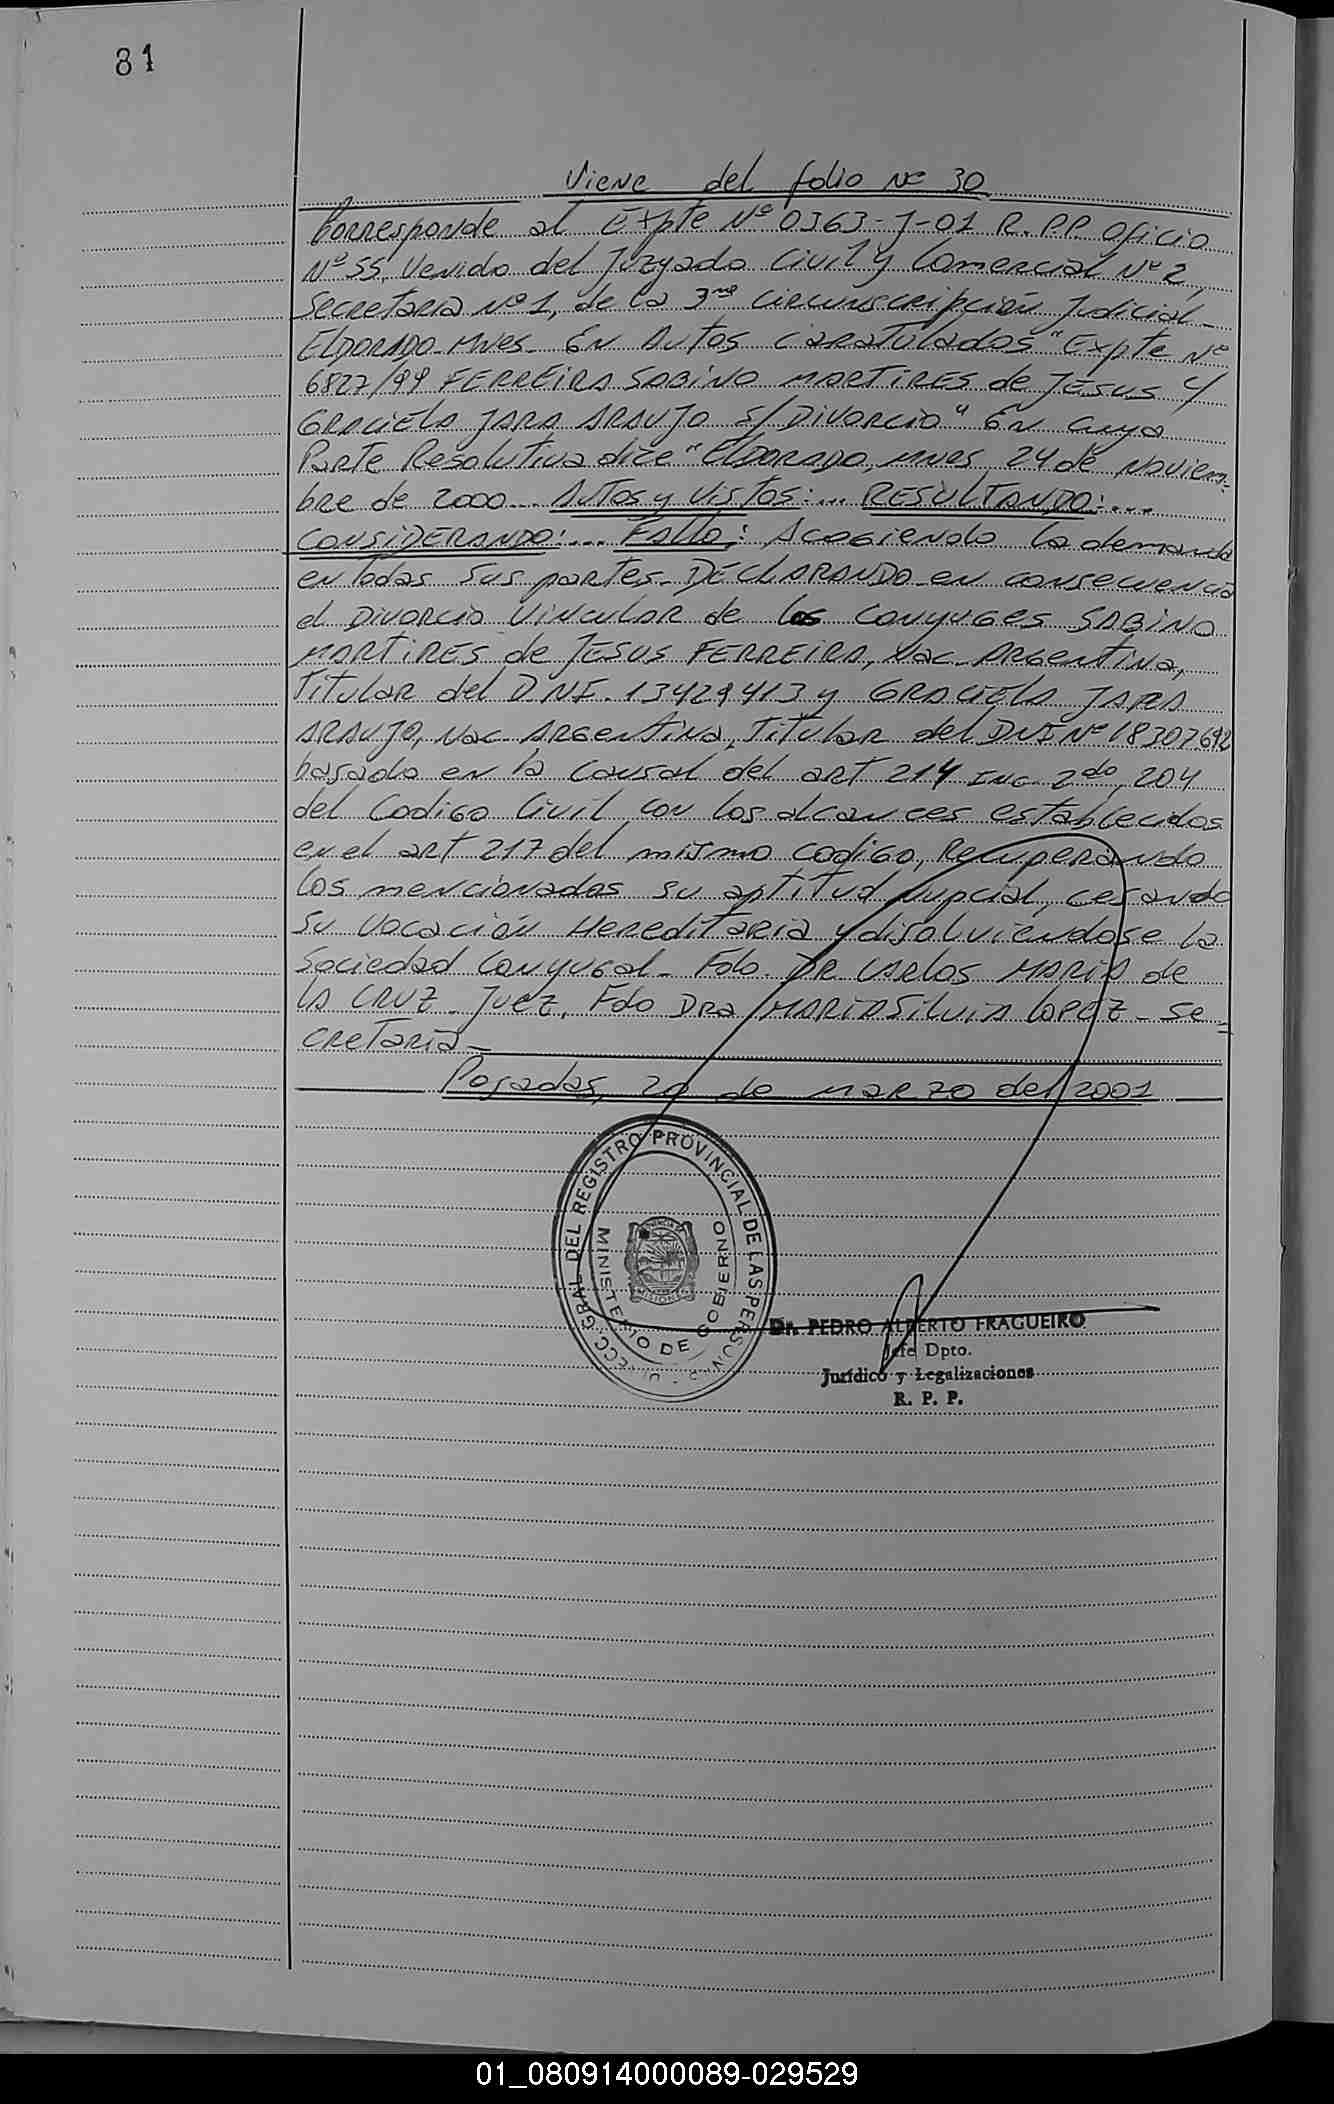 81
Viene del folio Nº 30
Corresponde al Expte Nº 0363-J-01 R.P.P. Oficio
Nº 55, Venido del Juzgado Civil y Comercial Nº 2,
Secretaria Nº 1, de la 3ra Circunscripción Judicial-
ELDORADO-Mnes- EN Autos caratulados "Expte Nº
6827/99 FERREIRA SABINO MARTIRES de JESUS y
GRACIELA JARA ARAUJO s/ DIVORCIO" EN cuya
Parte Resolutiva dice "ELDORADO, Mnes, 24 de Noviem=
bre de 2000... Autos y Vistos:... RESULTANDO:...
CONSIDERANDO:... Fallo: Acogiendo la demanda
en todas sus partes. DECLARANDO en consecuencia
el DIVORCIO VINCULAR de los conyuges SABINO
MARTIRES de JESUS FERREIRA, Nac. Argentina,
Titular del D.N.I. 13429413 y GRACIELA JARA
ARAUJO, Nac Argentina, Titular del DNI Nº 18307692
basado en la causal del art 214 INC 2do, 204
del Codigo Civil con los alcances establecidos
en el art 217 del mismo codigo, Recuperando
los mencionados su aptitud nupcial, cesando
su vocación Hereditaria y disolviendose la
Sociedad Conyugal- Fdo. DR CARLOS MARIA de
LA CRUZ- Juez, Fdo Dra MARIA SILVIA LOPEZ- Se=
cretaria-
Posadas, 20 de MARZO del 2001
DIRECC. GRAL DEL REGISTRO PROVINCIAL DE LAS PERSONAS
MINISTERIO DE GOBIERNO
MISIONES
Dr. PEDRO ALBERTO FRAGUEIRO
Jefe Dpto.
Jurídico y Legalizaciones
R. P. P.
01_080914000089-029529